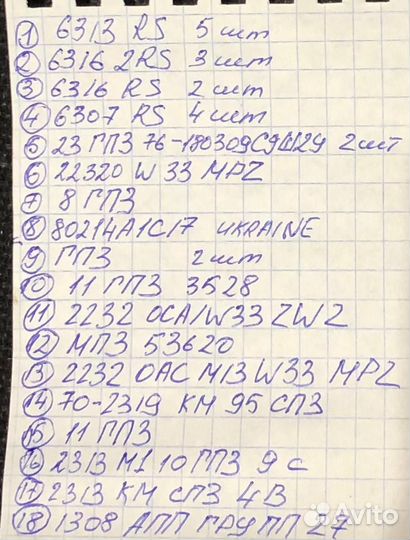 1 6313 RS 5 шт
2 6316 2RS 3 шт
3 6316 RS 2 шт
4 6307 RS 4 шт
5 23 ГПЗ 76-180309С9Ш29 2 шт
6 22320 W 33 MPZ
7 8 ГПЗ
8 80214А1С17 UKRAINE
9 ГПЗ 2 шт
10 11 ГПЗ 3528
11 2232 OCA/W33 ZWZ
12 МПЗ 53620
13 2232 OAC M13 W33 MPZ
14 70-2319 КМ 95 СПЗ
15 11 ГПЗ
16 2313 М1 10 ГПЗ 9 С
17 2313 КМ СПЗ 4В
18 1308 АПП ГРУПП 27
Avito